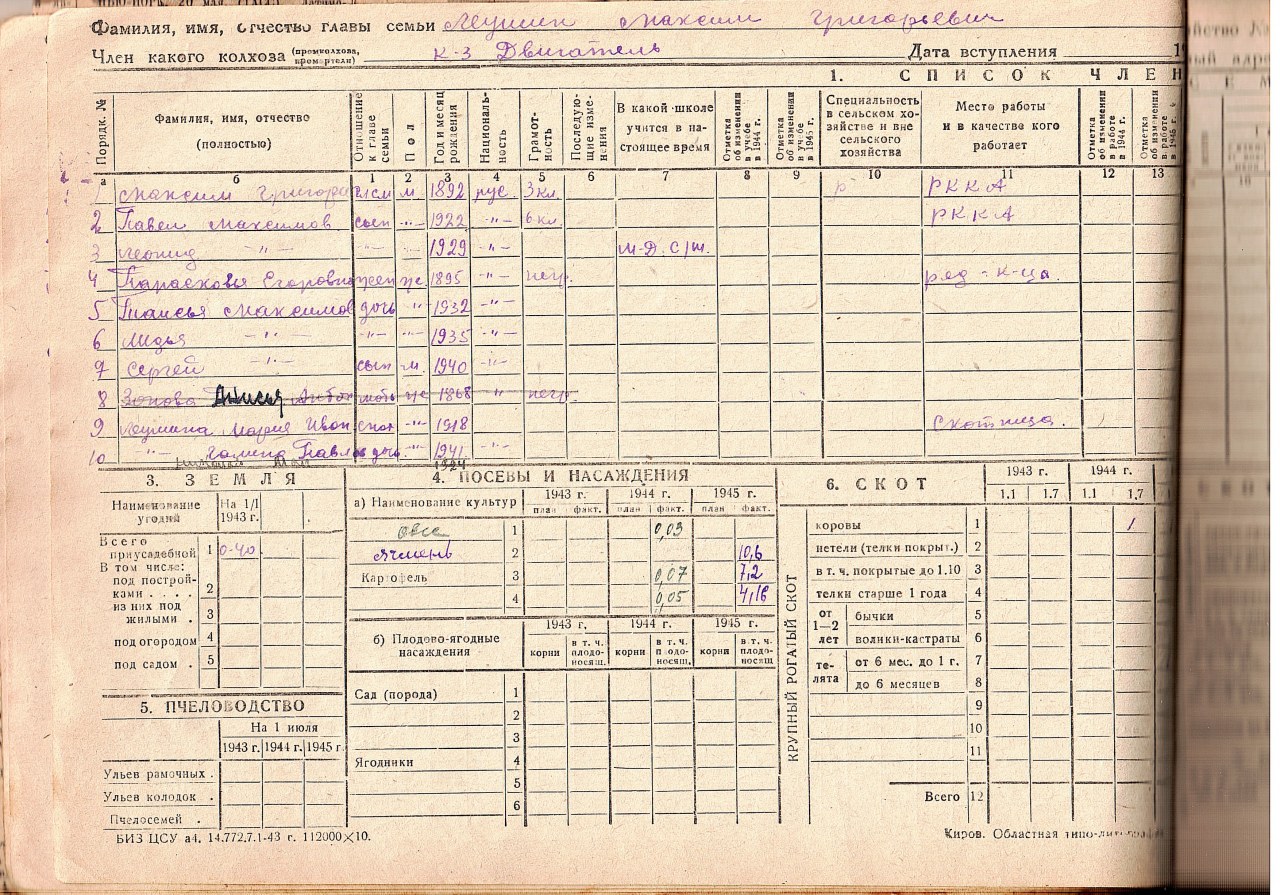 Фамилия, имя, отчество главы семьи Леушин Максим Григорьевич
Член какого колхоза (промколхоза, промартели) к-з Двигатель Дата вступления 19
1. СПИСОК ЧЛЕН
Порядк. № Фамилия, имя, отчество (полностью) Отношение к главе семьи Пол Год и месяц рождения Националь-ность Грамот-ность Последую-щие изме-нения В какой школе учится в на-стоящее время Отметка об изменении в учебе в 1944 г. Отметка об изменении в учебе в 1945 г. Специальность в сельском хо-зяйстве и вне сельского хозяйства Место работы и в качестве кого работает Отметка об изменении в работе в 1944 г. Отметка об изменении в работе в 1945 г.
а б 1 2 3 4 5 6 7 8 9 10 11 12 13
1 Максим Григорь м 1892 рус. 3 кл РККА
2 Павел Максимов сын -"- 1922 -"- 6 кл РККА
3 Леонид -"- -"- 1929 -"-
4 Парасковья Егоровна жен же 1895 -"- негр. ряд-к-ца.
5 Таисья Максимов дочь -"- 1932 -"-
6 Лидья -"- -"- -"- 1935 -"-
7 Сергей -"- сын м. 1940 -"-
8 Зонова Анисья мать же 1868 -"- негр.
9 Леушина Мария Иван снох -"- 1918 Скотница.
10 -"- Галина Павлов дочь -"- 1941 -"-
1924
3. ЗЕМЛЯ
Наименование угодий На 1/I 1943 г.
Всего приусадебной 1 0-40
В том числе:
под построй-ками . . . . 2
из них под жилыми . 3
под огородом 4
под садом . 5
5. ПЧЕЛОВОДСТВО
На 1 июля
1943 г. 1944 г. 1945 г.
Ульев рамочных .
Ульев колодок .
Пчелосемей .
4. ПОСЕВЫ И НАСАЖДЕНИЯ
а) Наименование культур 1943 г. 1944 г. 1945 г.
план факт. план факт. план факт.
овес 1 0,03
Ячмень 2 10,6
Картофель 3 0,07 7,2
4 0,05 4,16
б) Плодово-ягодные насаждения 1943 г. 1944 г. 1945 г.
корни в т. ч. плодо-носящ. корни в т. ч. плодо-носящ. корни в т. ч. плодо-носящ
Сад (порода) 1
2
3
Ягодники 4
5
6
6. СКОТ 1943 г. 1944 г.
1.1 1.7 1.1 1.7
КРУПНЫЙ РОГАТЫЙ СКОТ
коровы 1 1
нетели (телки покрыт.) 2
в т. ч. покрытые до 1.10 3
телки старше 1 года 4
от 1—2 лет бычки 5
волики-кастраты 6
те-лята от 6 мес. до 1 г. 7
до 6 месяцев 8
9
10
11
Всего 12
БИЗ ЦСУ а4. 14.772.7.1-43 г. 112000×10.
Киров. Областная типо-литография